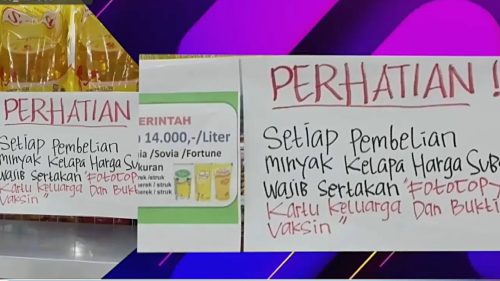 PERHATIAN
Setiap Pembelian
minyak Kelapa Harga Su
wajib Sertakan "FOTOCOP
Kartu Keluarga Dan Bukti
Vaksin"
ERINTAH
14.000,-/Liter
ia /Sovia /Fortune
kuran
erek / struk
PERHATIAN !
Setiap Pembelian
minyak Kelapa Harga SUB
wajib Sertakan "FOTOCOP
Kartu Keluarga Dan Bukti
Vaksin"